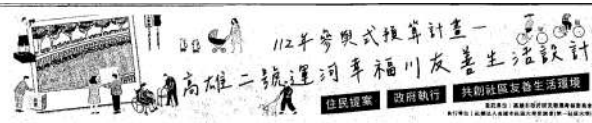 112年參與式預算計畫—
高雄二號運河幸福川友善生活設計
住民提案 政府執行 共創社區友善生活環境